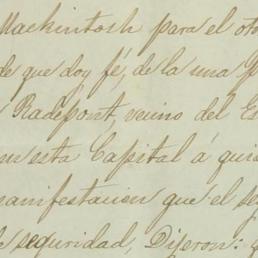 Mackintosh para el oto
de que doy fé, de la una p
Radepont, vecino del Es
en esta Capital á quie
manifestacion que el se
de seguridad, Dijeron: q